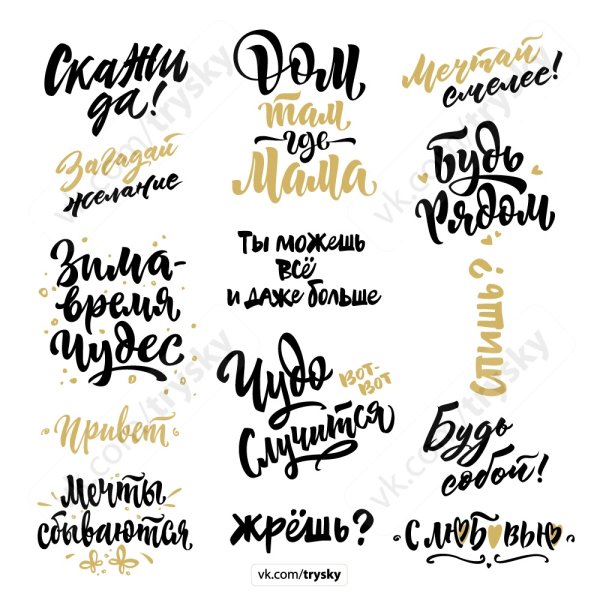 Скажи
да!
Загадай
желание
Зима-
время
чудес
Привет
Мечты
сбываются
Дом
там
где
Мама
Ты можешь
всё
и даже больше
Чудо
вот-
вот
Случится
жрёшь?
Мечтай
смелее!
Будь
Рядом
Спишь?
Будь
собой!
С любовью
vk.com/trysky
vk.com/trysky
vk.com/trysky
vk.com/trysky
vk.com/trysky
vk.com/trysky